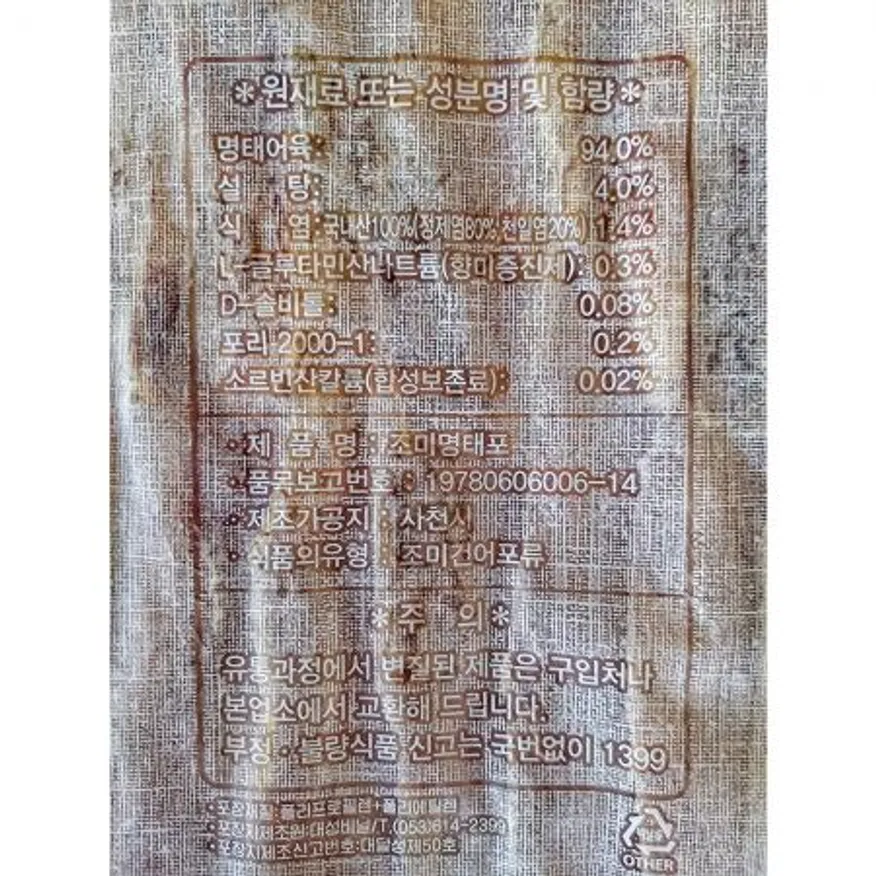 *원재료 또는 성분명 및 함량*
명태어육: 94.0%
설 탕: 4.0%
식 염:국내산100%(정제염80%,천일염20%) 1.4%
L-글루타민산나트륨(향미증진제): 0.3%
D-솔비톨: 0.08%
포리 2000-1: 0.2%
소르빈산칼륨(합성보존료): 0.02%
•제 품 명 : 조미명태포
•품목보고번호 : 19780606006-14
•제조가공지 : 사천시
•식품의유형 : 조미건어포류
*주 의*
유통과정에서 변질된 제품은 구입처나
본업소에서 교환해 드립니다.
부정·불량식품 신고는 국번없이 1399
•포장재질:폴리프로필렌+폴리에틸렌
•포장지제조원:대성비닐/T.(053)614-2399
•포장지제조신고번호:대달성제50호
OTHER